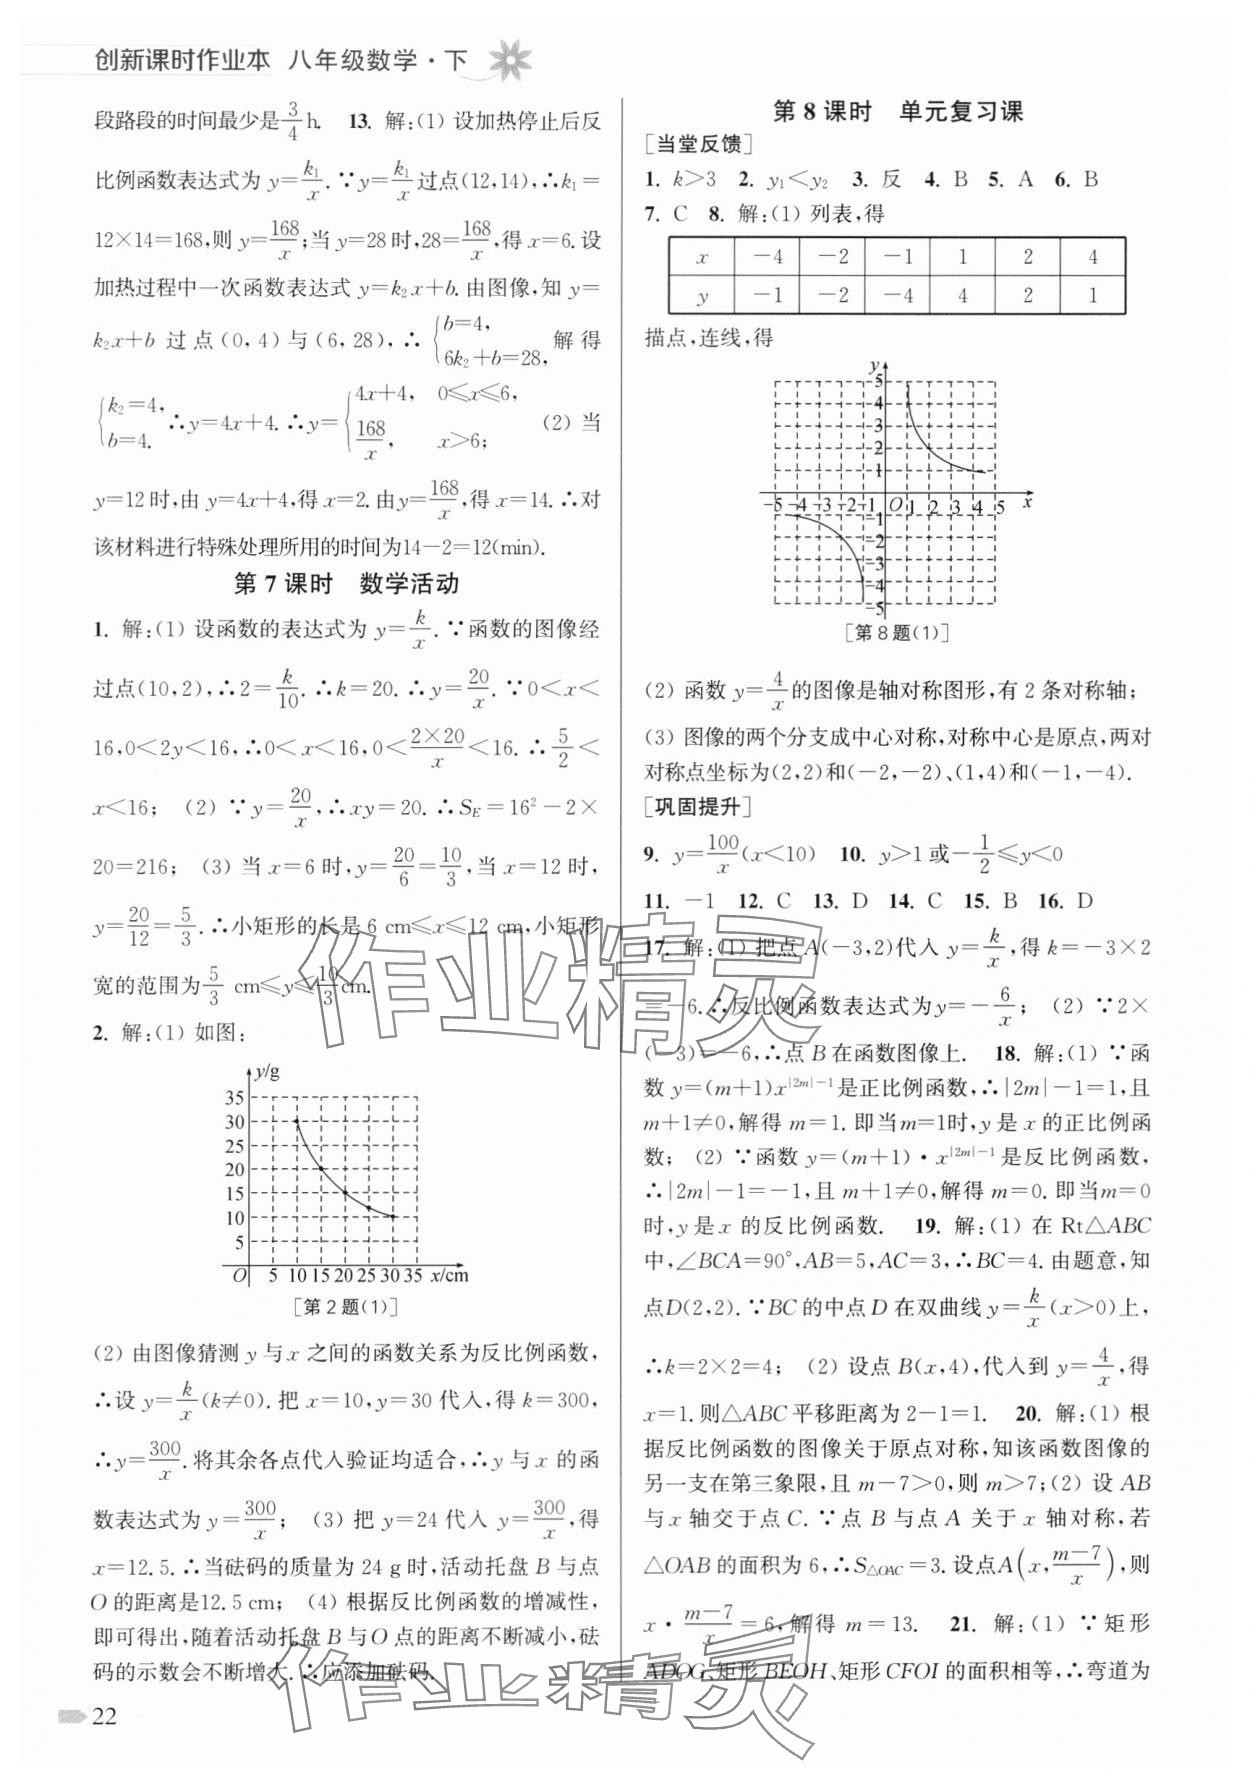 创新课时作业本 八年级数学·下
段路段的时间最少是3/4 h. 13. 解:(1) 设加热停止后反
比例函数表达式为 y=k₁/x. ∵y=k₁/x过点(12,14),∴k₁=
12×14=168,则 y=168/x;当 y=28时,28=168/x,得 x=6. 设
加热过程中一次函数表达式 y=k₂x+b. 由图像,知 y=
k₂x+b 过点(0,4)与(6,28),∴{b=4, 6k₂+b=28, 解得
{k₂=4, b=4. ∴y=4x+4. ∴y={4x+4, 0≤x≤6, 168/x, x>6; (2) 当
y=12时,由 y=4x+4,得 x=2. 由y=168/x,得 x=14. ∴对
该材料进行特殊处理所用的时间为14-2=12(min).
第 7 课时 数学活动
1. 解:(1) 设函数的表达式为 y=k/x. ∵函数的图像经
过点(10,2),∴2=k/10. ∴k=20. ∴y=20/x. ∵0<x<
16,0<2y<16,∴0<x<16,0<2×20/x<16. ∴5/2<
x<16; (2) ∵y=20/x,∴xy=20. ∴S_E=16²-2×
20=216; (3) 当 x=6 时,y=20/6=10/3,当 x=12 时,
y=20/12=5/3. ∴小矩形的长是 6 cm≤x≤12 cm,小矩形
宽的范围为5/3 cm≤y≤10/3cm.
2. 解:(1) 如图:
y/g
35
30
25
20
15
10
5
O 5 10 15 20 25 30 35 x/cm
[第 2 题(1)]
(2) 由图像猜测 y 与 x 之间的函数关系为反比例函数,
∴设 y=k/x(k≠0). 把 x=10,y=30 代入,得 k=300,
∴y=300/x. 将其余各点代入验证均适合,∴y 与 x 的函
数表达式为 y=300/x; (3) 把 y=24 代入 y=300/x,得
x=12.5. ∴当砝码的质量为 24 g 时,活动托盘 B 与点
O 的距离是12.5 cm; (4) 根据反比例函数的增减性,
即可得出,随着活动托盘 B 与 O 点的距离不断减小,砝
码的示数会不断增大. ∴应添加砝码.
22
第 8 课时 单元复习课
[当堂反馈]
1. k>3 2. y₁<y₂ 3. 反 4. B 5. A 6. B
7. C 8. 解:(1) 列表,得
x -4 -2 -1 1 2 4
y -1 -2 -4 4 2 1
描点,连线,得
y
5
4
3
2
1
-5 -4 -3 -2 -1 O 1 2 3 4 5 x
-1
-2
-3
-4
-5
[第 8 题(1)]
(2) 函数 y=4/x的图像是轴对称图形,有 2 条对称轴;
(3) 图像的两个分支成中心对称,对称中心是原点,两对
对称点坐标为(2,2)和(-2,-2)、(1,4)和(-1,-4).
[巩固提升]
9. y=100/x(x<10) 10. y>1 或-1/2≤y<0
11. -1 12. C 13. D 14. C 15. B 16. D
17. 解:(1) 把点 A(-3,2)代入 y=k/x,得 k=-3×2
=-6. ∴反比例函数表达式为y=-6/x; (2) ∵2×
(-3)=-6,∴点 B 在函数图像上. 18. 解:(1) ∵函
数 y=(m+1)x^|2m|-1是正比例函数,∴|2m|-1=1,且
m+1≠0,解得 m=1. 即当m=1时,y 是 x 的正比例函
数; (2) ∵函数 y=(m+1)·x^|2m|-1是反比例函数,
∴|2m|-1=-1,且 m+1≠0,解得 m=0. 即当m=0
时,y 是 x 的反比例函数. 19. 解:(1) 在 Rt△ABC
中,∠BCA=90°,AB=5,AC=3,∴BC=4. 由题意,知
点D(2,2). ∵BC的中点 D 在双曲线 y=k/x(x>0)上,
∴k=2×2=4; (2) 设点 B(x,4),代入到 y=4/x,得
x=1. 则△ABC 平移距离为 2-1=1. 20. 解:(1) 根
据反比例函数的图像关于原点对称,知该函数图像的
另一支在第三象限,且 m-7>0,则 m>7;(2) 设 AB
与 x 轴交于点 C. ∵点 B 与点 A 关于 x 轴对称,若
△OAB 的面积为 6,∴S△OAC=3. 设点A(x,m-7/x),则
x·m-7/x=6,解得 m=13. 21. 解:(1) ∵矩形
ADOG、矩形 BEOH、矩形 CFOI 的面积相等,∴弯道为
作业精灵
作业精灵